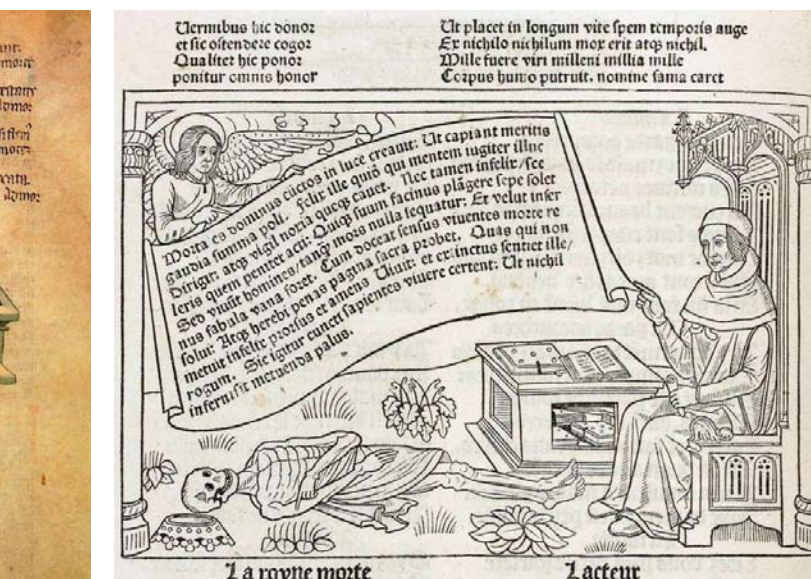 Uermibus hic donor
et sic ostendere cogor
Qualiter hic ponor
ponitur omnis honor
Ut placet in longum vite spem temporis auge
Ex nichilo nichilum mox erit atqʒ nichil.
Mille fuere viri milleni millia mille
Corpus humo putruit. nomine fama caret
es dominus cūctos in luce creauit: Ut capiant meritis
gaudia summa poli. felix ille quid qui mentem iugiter illuc
Dirigit: atqʒ vigil noxia queqʒ cauet. Nec tamen infelix sce
leris quem penitet acti: Quiqʒ suum facinus plāgere sepe solet
Sed viuūt homines/ tanqʒ mors nulla sequatur: Et velut infer
nus fabula vana foret. Cum doceat sensus viuentes morte re
solui: Atqʒ herebi penas pagina sacra probet. Quas qui non
metuit infelix prorsus et amens Uiuit: et extinctus sentiet ille/
rogum. Sic igitur cuncti sapientes viuere certent: Ut nichil
inferni sit metuenda palus.
La royne morte
Lacteur